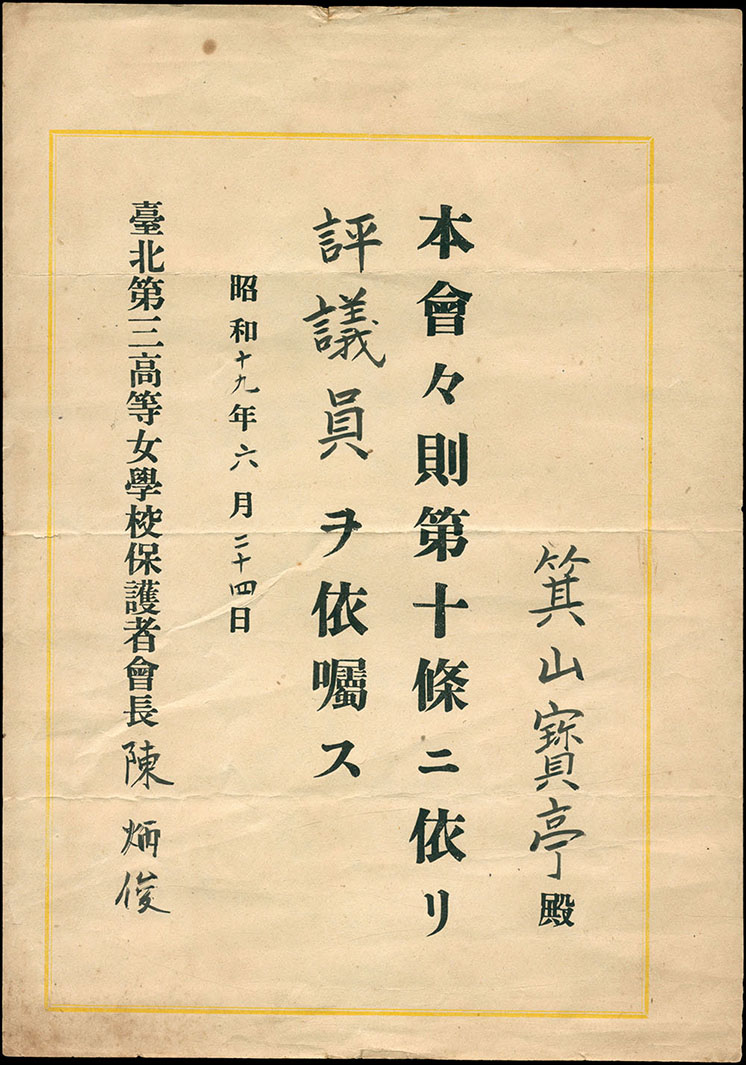 箕山寶亭殿
本會々則第十條ニ依リ
評議員ヲ依囑ス
昭和十九年六月二十四日
臺北第三高等女學校保護者會長陳炳俊